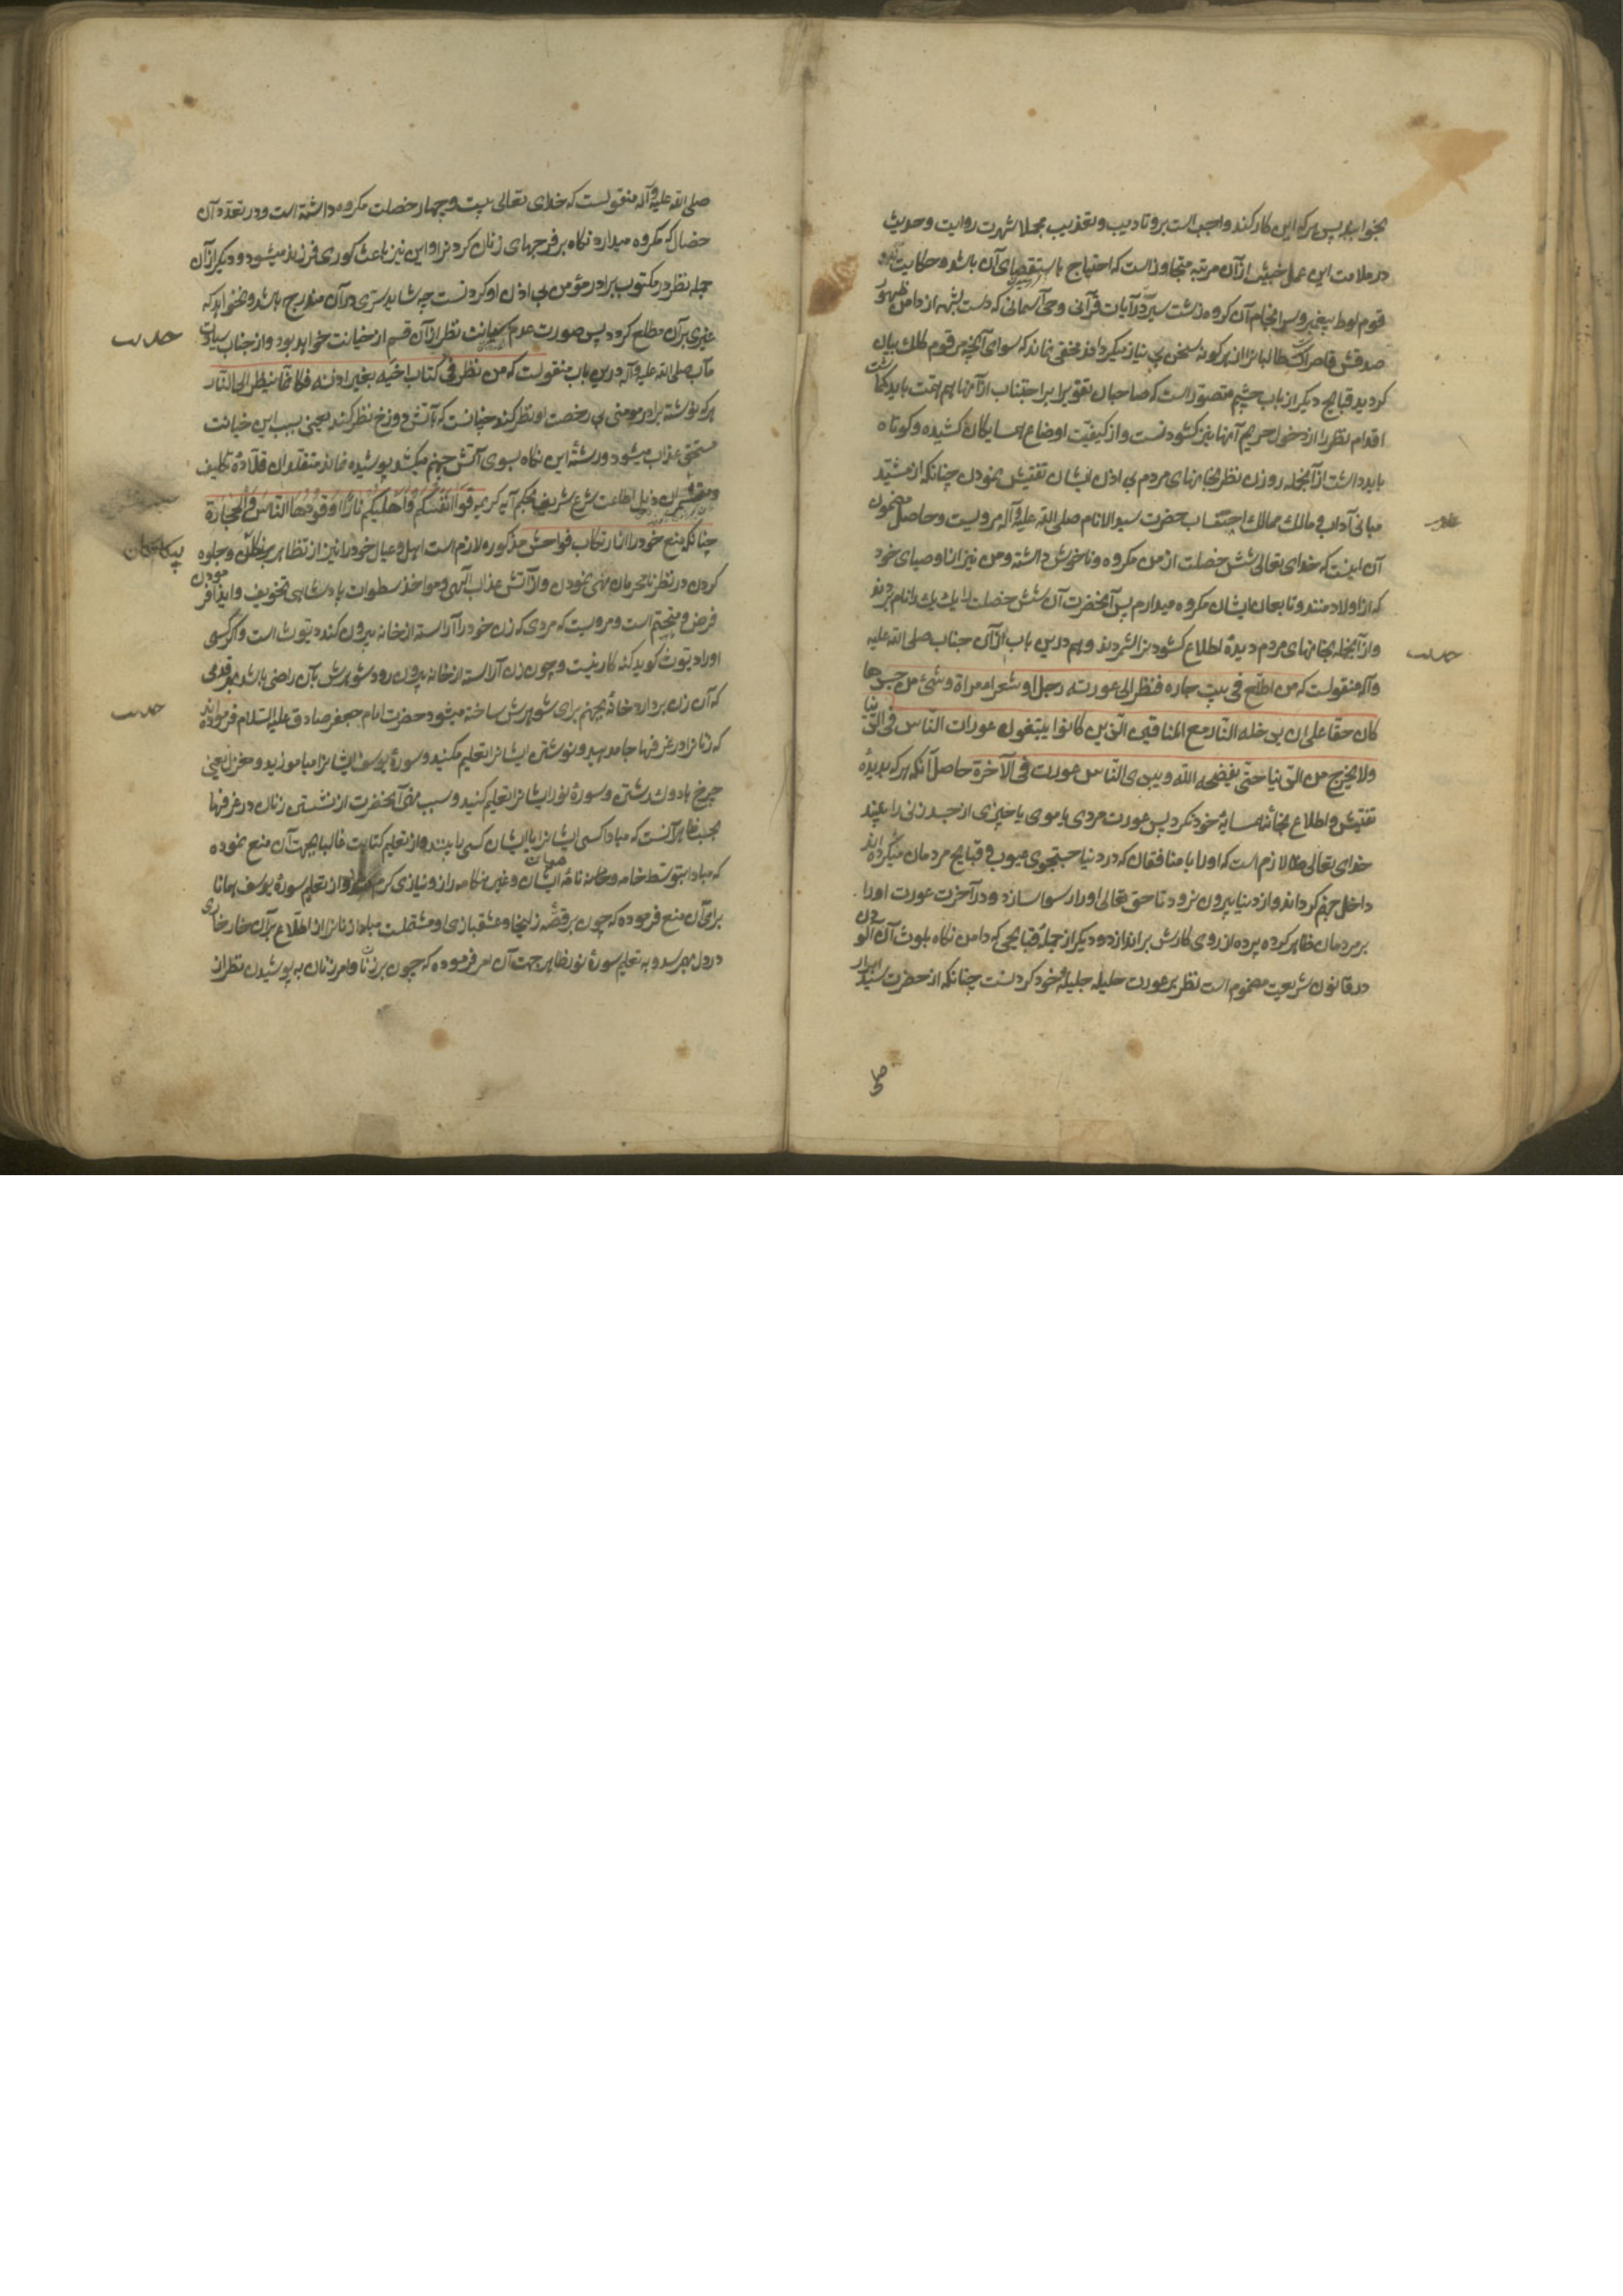 بخوابید پس هر که این کار کند واجب است برو تادیب و تعذیب مجملا شهرت روایت و حدیث
در ملامت این عمل خبیث از آن مرتبه متجاوز است که احتیاج باستقصای آن باشد و حکایت
قوم لوط پیغمبر و سر انجام آن کروه زشت سیر در آیات قرآنی و وحی آسمانی که دست شبهه از دامن ظهور
صدقش قاصر است طالبانرا از هر کونه سخن بی نیاز میکرداند مخفی نماند که سوای آنچه مرقوم کلک بیان
کردید قبایح دیکر از باب چشم متصور است که صاحبان تقوی را بر اجتناب از آنها هم همت باید کماشت
اقدام نظر را از دخول حریم آنها نیز کشودنست و از کیفیت اوضاع همسایکان کشیده و کوتاه
باید داشت از آنجمله روزن نظر بخانهای مردم بی اذن ایشان تفتیش نمودن چنانکه از مشید
مبانی آداب و مالک ممالک احتساب حضرت سید الانام صلی الله علیه و آله مرویست و حاصل مضمون
آن اینست که خدای تعالی شش خصلت از من مکروه و ناخوش داشته و من نیز آنها و صیای خود
که از اولاد منند و تابعان ایشان مکروه میدارم پس آنحضرت آن شش خصلت را یک یک را نام بردند
و از آنجمله بخانهای مردم دیدهٔ اطلاع کشودنرا شمردند و هم درین باب از آن جناب صلی الله علیه
حدیث
و آله منقولست که من اطلع فی بیت جاره فنظر الی عورته رجل او شعر امراة و شیء من جسدها
کان حقا علی ان یدخله النار مع المنافقین الذین کانوا یبتغون عورات الناس فی الدنیا
ولا یخرج من الدنیا حتی یفضحه الله و یبدی للناس عورته فی الآخرة حاصل آنکه هر که بدیدهٔ
تفتیش و اطلاع بخانه همسایهٔ خود نکرد پس عورت مردی یا موی یا چیزی از جسد زنی را بیند
خدای تعالی را لازم است که او را با منافقان که در دنیا جستجوی عیوب و قبایح مردمان میکرده اند
داخل جهنم کرداند و از دنیا بیرون نرود تا حق تعالی او را رسوا سازد و در آخرت عورت او را
بر مردمان ظاهر کرده پرده از روی کارش براندازد و دیکر از جملهٔ قبایحی که دامن نکاه بلوث آن آلودن
در قانون شریعت مذموم است نظر بر عورت حلیله جلیلهٔ خود کردنست چنانکه از حضرت سید ابرار
صلی
صلی الله علیه و آله منقولست که خدای تعالی بیست و چهار خصلت مکروه داشته است و در تعدد آن
خصال که مکروه میدارد نکاه بر فرجهای زنان کردنرا و این نیز باعث کوری فرزند میشود و دیکر از آن
جمله نظر در مکتوب برادر مؤمن بی اذن او کردنست چه شاید ستری در آن مندرج باشد و نخواهد که
غیری بر آن مطلع کردد پس صورت عدم صیانت نظر از آن قسم از خیانت خواهد بود و از جناب سیادت
حدیث
مآب صلی الله علیه و آله درین باب منقولست که من نظر فی کتاب اخیه بغیر اذنه فکانما ینظر الی النار
هر که نوشته برادر مومنی بی رخصت او نظر کند چنانست که بآتش دوزخ نظر کند یعنی بسبب این خیانت
مستحق عذاب میشود و رشته این نکاه بسوی آتش جهنم میکشد پوشیده نماند متقلدان قلادهٔ تکلیف
ذیل اطاعت شرع شریف بحکم آیه کریمه قوا انفسکم و اهلیکم نارا وقودها الناس و الحجارة
چنانکه منع خود را از ارتکاب فواحش مذکوره لازم است اهل و عیال خود را نیز از تظاهر و جلوه
کردن در نظر نامحرمان نهی نمودن و از آتش عذاب الهی و مواخذ سطوات پادشاهی تخویف و اینذار نمودن
فرض و متحتم است و مرویست که مردی که زن خود را آراسته از خانه بیرون کند دیوث است و اکر کسی
او را دیوث کوید کنه کار نیست و چون زن آراسته از خانه بیرون رود شوهرش بآن راضی باشد بهر قدمی
که آن زن بردارد خانه بجهنم برای شوهرش ساخته میشود حضرت امام جعفر صادق علیه السلام فرموده اند
حدیث
که زنانرا در غرفها جا مدهید و نوشتن ایشانرا تعلیم مکنید و سورهٔ یوسف ایشانرا میاموزید و مغزل یعنی
چرخ یا دوک رشتن و سورهٔ نور ایشانرا تعلیم کنید و سبب منع آنحضرت از نشستن زنان در غرفها
بحسب ظاهر آنست که مبادا کسی ایشانرا یا ایشان کسی را بینند و از تعلیم کتابت غالبا بجهت آن منع نموده
که مبادا بتوسط خامه و نامه میان ایشان و غیر هنکامه راز و نیازی کرم شود و از تعلیم سورهٔ یوسف همانا
برای آن منع فرموده که چون بر قصهٔ زلیخا و عشقبازی او مشتملست مبادا زنانرا از اطلاع بر آن خار خاری
در دل بهم رسد و به تعلیم سورهٔ نور ظاهرا جهت آن امر فرموده که چون بر زنا و امر زنان به پوشیدن نظر از